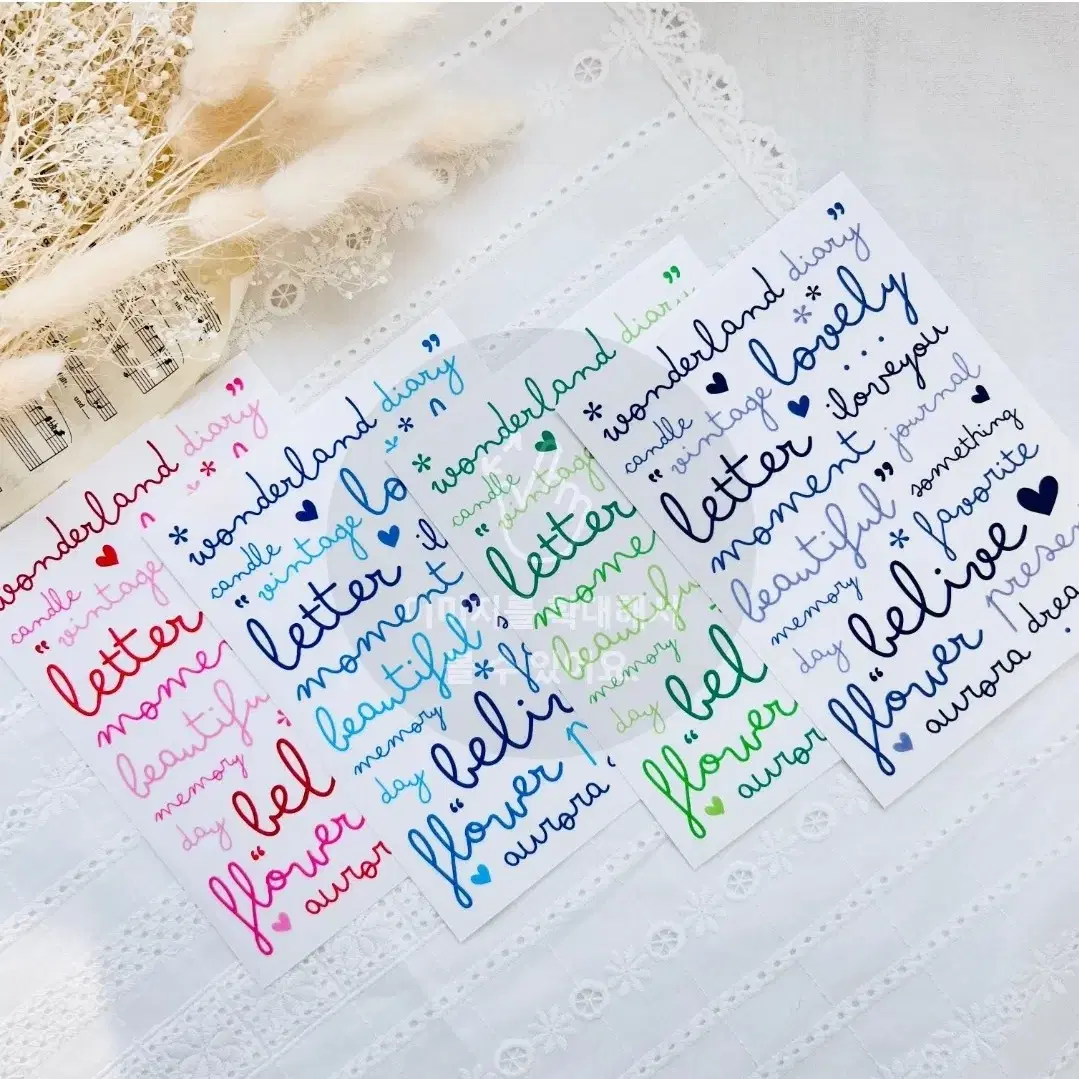 wonderland diary ”
candle
“ vintage
letter
mome
beautifu
memory
day
“ bel
flower
auror
* wonderland diary ”
candle
“ vintage lo
letter il
moment
beautiful ”
memory * f
day
“ beliv
flower p
aurora
* wonderland diary ”
candle
“ vintage
letter
mome
beautifu
memory
day
“ bel
flower
auror
* wonderland diary ”
candle
“ vintage lovely
letter iloveyou
moment journal
beautiful ” something
memory * favorite
day
“ belive
flower presen
aurora drea
이미지를 확대해서
볼 수 있어요.